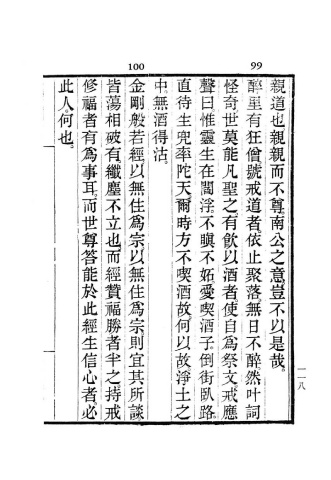 99
100
親道也親親而不尊南公之意豈不以是哉。
醉里有狂僧號戒道者依止聚落無日不醉然叶詞
怪奇世莫能凡聖之有飮以酒者使自爲祭文戒應
聲曰惟靈生在閻浮不瞋不妬愛喫酒子倒街臥路
直待生兜率陀天爾時方不喫酒故何以故淨土之
中無酒得沽。
金剛般若經以無住爲宗以無住爲宗則宜其所談
皆蕩相破有纖塵不立也而經贊福勝者半之持戒
修福者有爲事耳而世尊答能於此經生信心者必
此人何也。
一一八